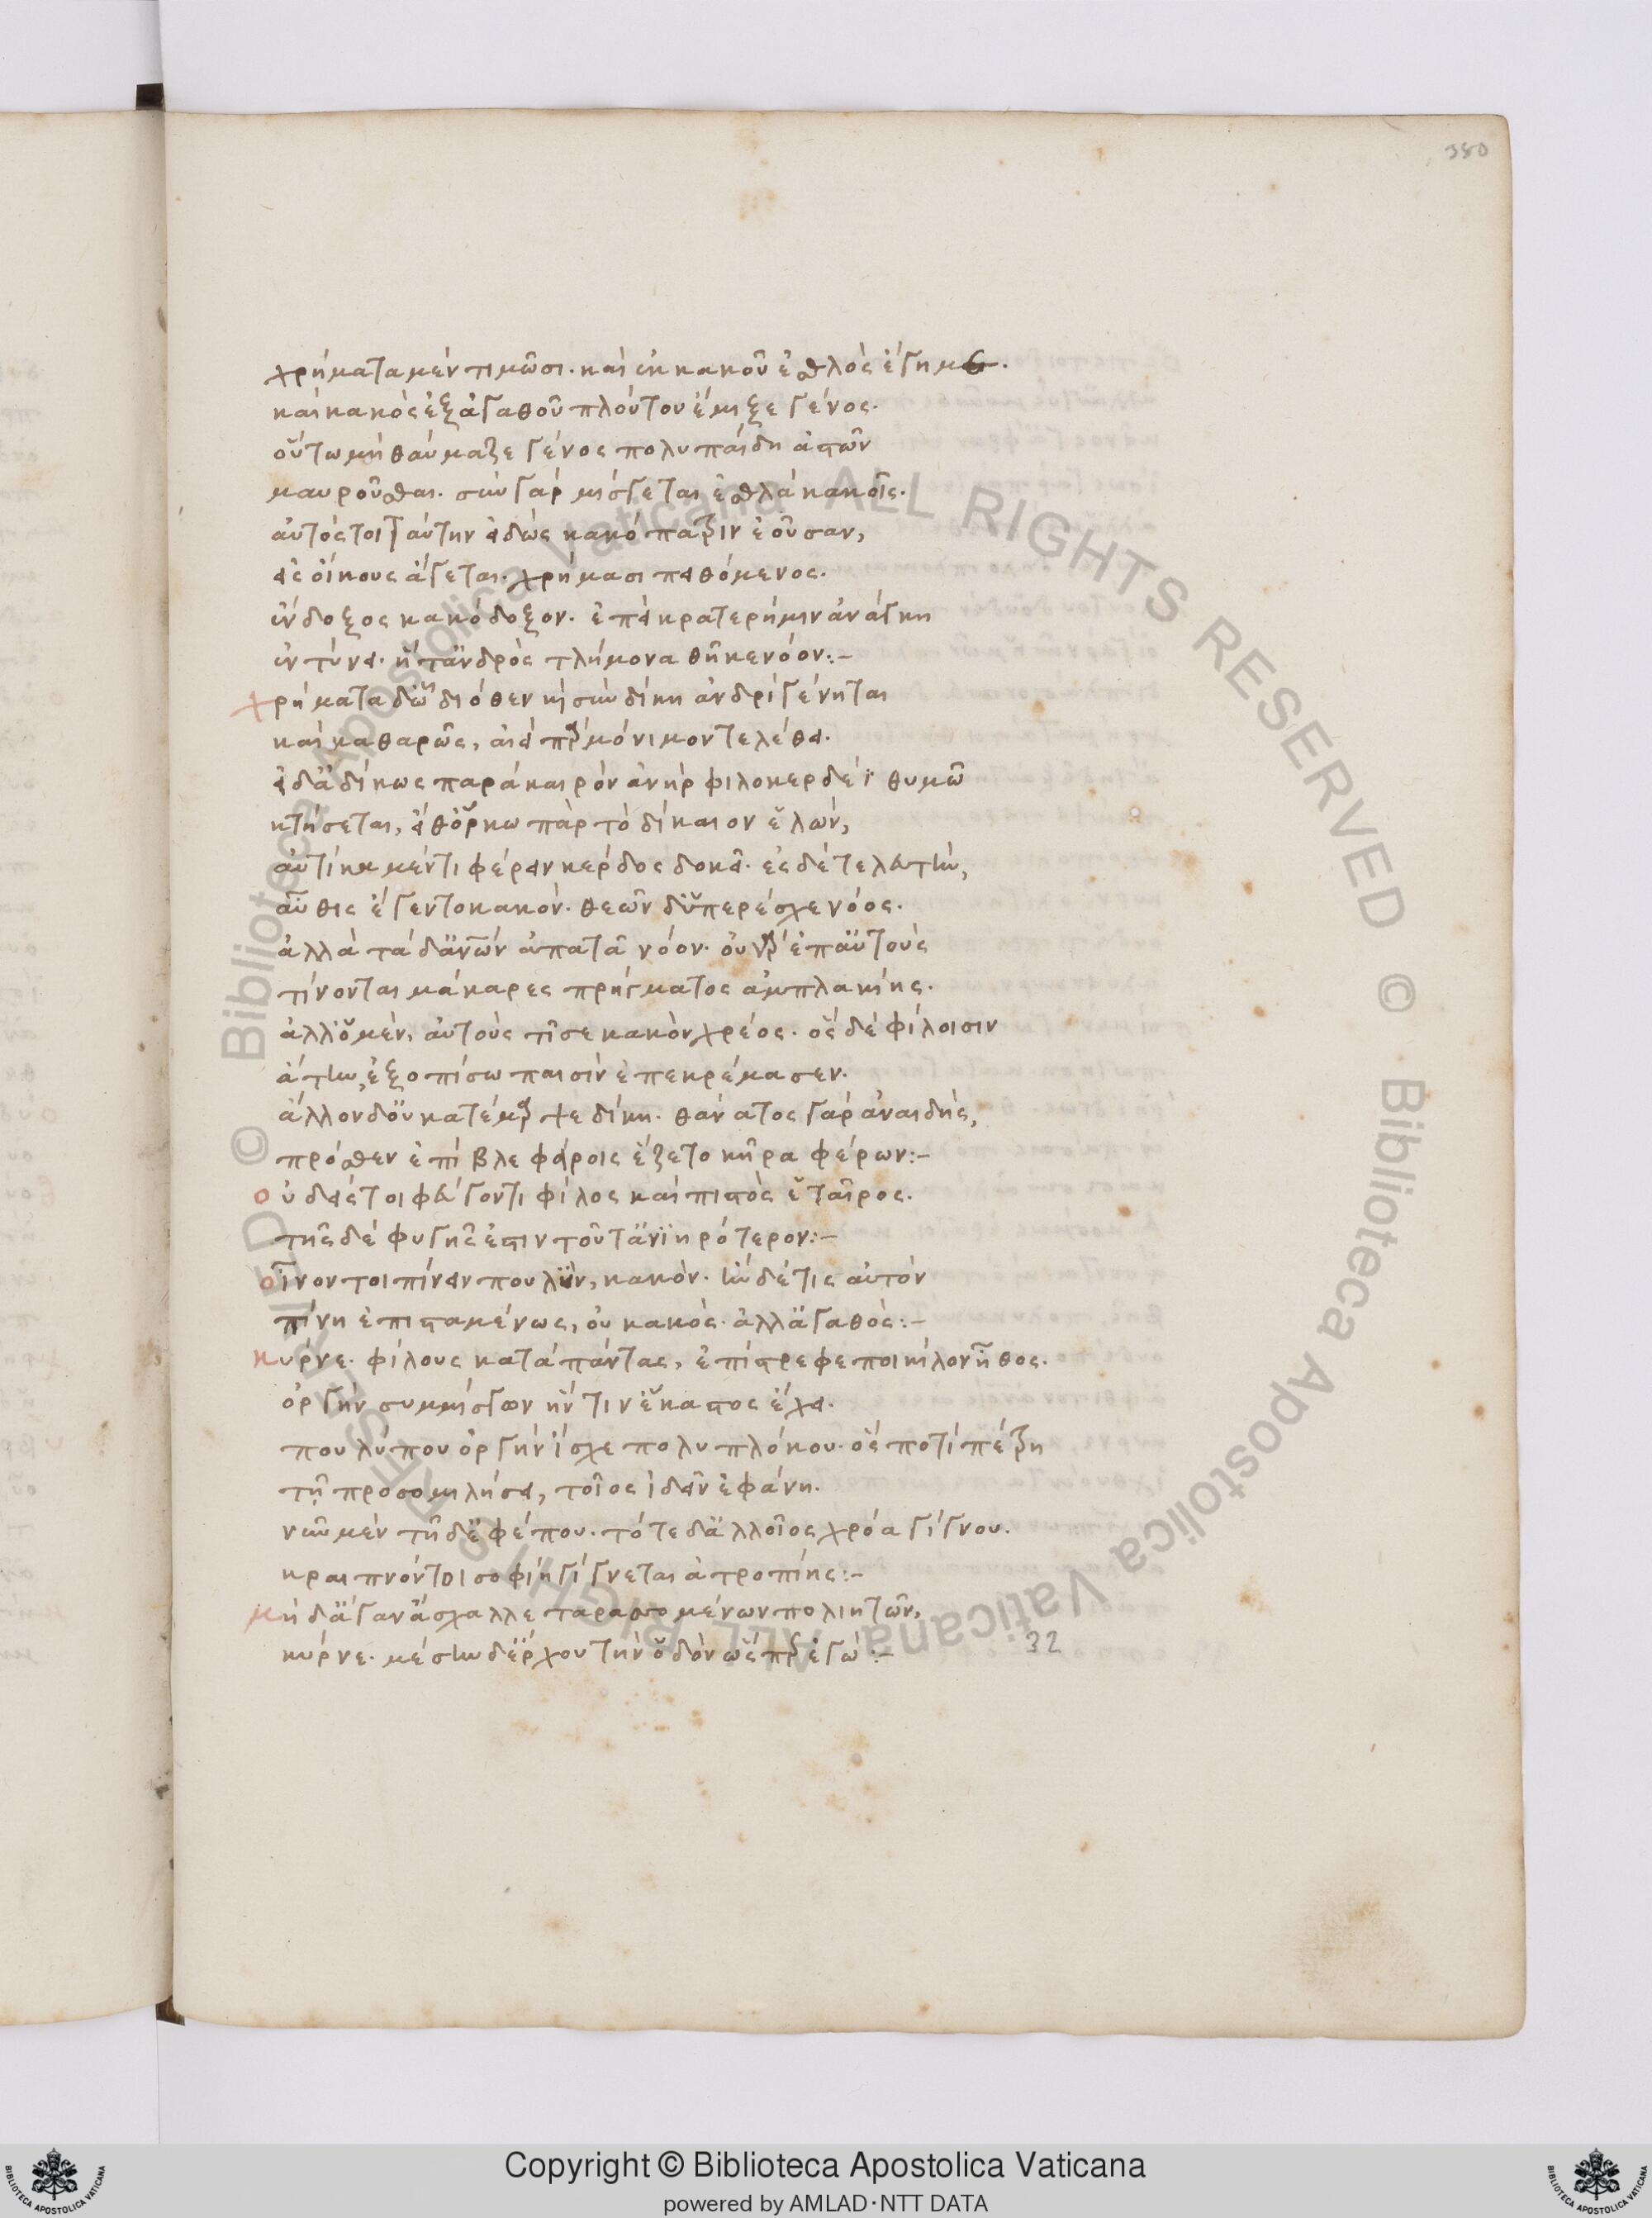 380
χρήματα μὲν τιμῶσι. καὶ ἐκ κακοῦ ἐσθλὸς ἔγημε.
καὶ κακὸς ἐξ ἀγαθοῦ πλοῦτον ἔμιξε γένος.
οὕτω μὴ θαύμαζε γένος πολυπαίδη ἀστῶν
μαυροῦσθαι. σὺν γὰρ μίσγεται ἐσθλὰ κακοῖς.
αὐτός τοι ταύτην εἰδὼς κακόπατριν ἐοῦσαν,
εἰς οἴκους ἄγεται. χρήμασι πειθόμενος.
ἔνδοξος κακόδοξον. ἐπεὶ κρατερή μιν ἀνάγκη
ἐντύνει. ἥτ' ἀνδρὸς τλήμονα θῆκε νόον:-
χρήματα δ' ὧ διόθεν κὴ σὺν δίκη ἀνδρὶ γένηται
καὶ καθαρῶς, αἰεὶ παρμόνιμον τελέθει.
εἰ δ' ἀδίκως παρὰ καιρὸν ἀνὴρ φιλοκερδέϊ θυμῶ
κτήσεται, εἴθ' ὅρκω πὰρ τὸ δίκαιον ἑλὼν,
αὐτίκα μέν τι φέρειν κέρδος δοκεῖ. ἐς δὲ τελευτὴν,
αὖθις ἔγεντο κακόν. θεῶν δ' ὑπερέσχε νόος.
ἀλλὰ τά δ' ἀνῶν ἀπατᾶ νόον. οὐ γὰρ ἐπ' αὐτοὺς
τίνονται μάκαρες πρήγματος ἀμπλακίης.
ἀλλ' ὁ μὲν, αὐτοὺς τῖσε κακὸν χρέος. ὃς δὲ φίλοισιν
ἄτην, ἐξοπίσω παισὶν ἐπεκρέμασεν.
ἄλλον δ' οὐ κατέμαρψε δίκη. θάνατος γὰρ ἀναιδὴς,
πρόσθεν ἐπὶ βλεφάροις ἕζετο κῆρα φέρων:-
οὐδείς τοι φεύγοντι φίλος καὶ πιστὸς ἑταῖρος.
τῆς δὲ φυγῆς ἐστιν τοῦτ' ἀνιηρότερον:-
οἶνον τοι πίνειν πουλὺν, κακὸν. ἢν δέ τις αὐτὸν
πίνη ἐπισταμένως, οὐ κακὸς. ἀλλ' ἀγαθὸς:-
κύρνε. φίλους κατὰ πάντας, ἐπίστρεφε ποικίλον ἦθος.
ὀργὴν συμμίσγων ἥντιν' ἕκαστος ἔχει.
πουλύπου ὀργὴν ἴσχε πολυπλόκου. ὃς ποτὶ πέτρη
τῇ προσομιλήσει, τοῖος ἰδεῖν ἐφάνη.
νῦν μὲν τῆδ' ἐφέπου. τότε δ' ἀλλοῖος χρόα γίγνου.
κραιπνόν τοι σοφίη γίγνεται ἀτροπίης:-
μηδ' ἄγαν ἄσχαλλε ταρασσομένων πολιητῶν,
κύρνε. μέσην δ' ἔρχου τὴν ὁδὸν ὥσπερ ἐγώ:-
32
© Biblioteca Apostolica Vaticana ALL RIGHTS RESERVED © Biblioteca Apostolica Vaticana ALL RIGHTS RESERVED
Copyright © Biblioteca Apostolica Vaticana
powered by AMLAD·NTT DATA
BIBLIOTECA APOSTOLICA VATICANA
BIBLIOTECA APOSTOLICA VATICANA